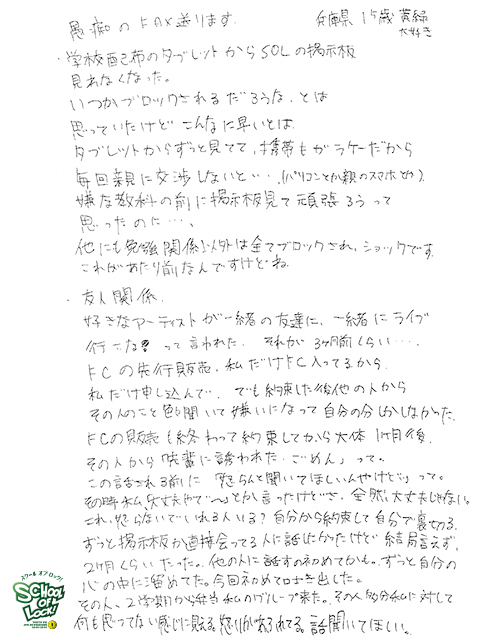 愚痴のFAX送ります。
兵庫県 15歳 黄緑
大好き
・学校配布のタブレットからSOLの掲示板
見れなくなった。
いつかブロックされるだろうな、とは
思っていたけどこんなに早いとは
タブレットからずっと見てて、携帯もガラケーだから
毎回親に交渉しないと…(パソコンとか親のスマホとか)
嫌な教科の前に掲示板見て頑張ろうって
思ったのに…、
他にも勉強関係以外は全てブロックされ、ショックです。
これがあたり前なんですけどね
・友人関係、
好きなアーティストが一緒の友達に、一緒にライブ
行こな?って言われた、それが3ヶ月前くらい…、
FCの先行販売、私だけFC入ってるから
私だけ申し込んで、でも約束した後他の人から
その人のこと色々聞いて嫌いになって自分の分しかしなかった
FCの販売も終わって約束してから大体1ヶ月後、
その人から「先輩に誘われた、ごめん」って。
この話される前に「怒らんと聞いてほしいんやけど」って。
その時私、「大丈夫やで~」とか言ったけどさ、全然大丈夫じゃない。
これ、怒らないでいれる人いる?自分から約束して自分で裏切る。
ずっと掲示板か直接会ってる人に話したかったけど結局言えず、
2ヶ月くらいたった。他の人に話すの初めてかも。ずっと自分の
心の中に溜めてた。今回初めて口き出した。
その人、2学期から弁当私のグループ来た。その人多分私に対して
何も思ってない感じに見える。怒りがあふれてる。話聞いてほしい。
スクールオブロック!
SCHOOL
OF
LOCK!